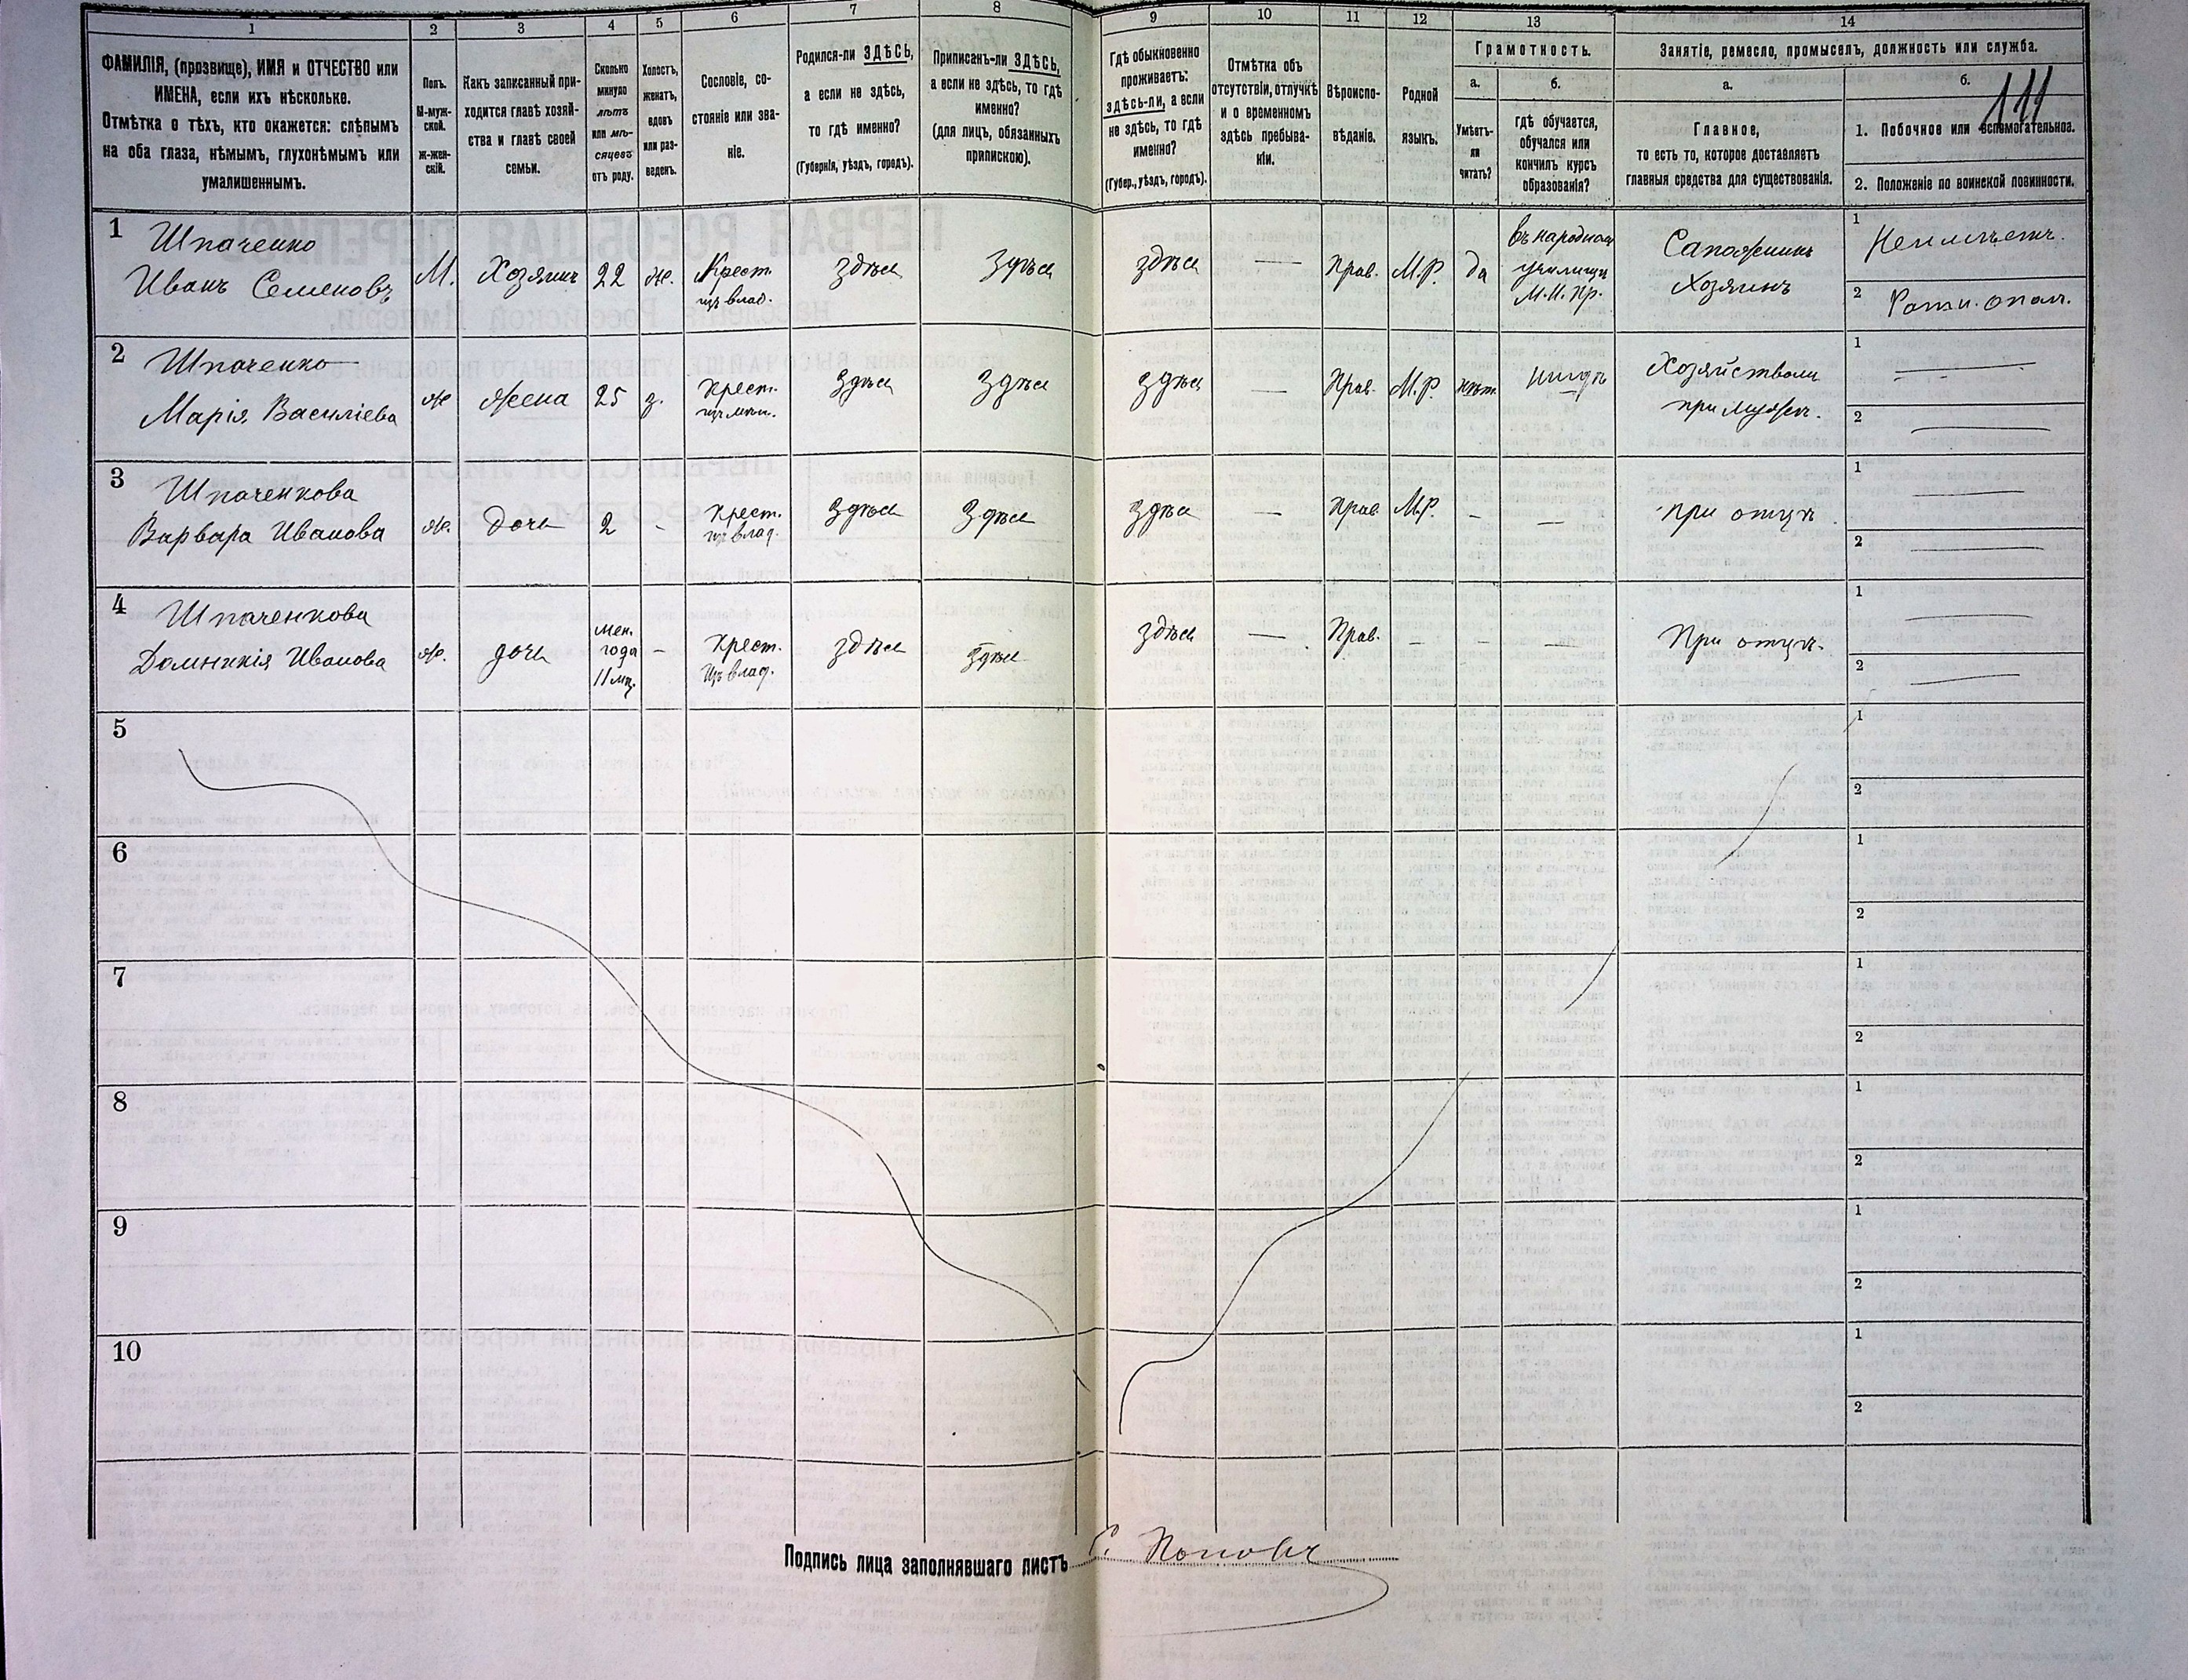 1 2 3 4 5 6 7 8 9 10 11 12 13 14
ФАМИЛІЯ, (прозвище), ИМЯ и ОТЧЕСТВО или
ИМЕНА, если ихъ нѣсколько.
Отмѣтка о тѣхъ, кто окажется: слѣпымъ
на оба глаза, нѣмымъ, глухонѣмымъ или
умалишеннымъ.
Полъ.
М-муж-
ской.
Ж-жен-
скій.
Какъ записанный при-
ходится главѣ хозяй-
ства и главѣ своей
семьи.
Сколько
минуло
лѣтъ
или мѣ-
сяцевъ
отъ роду.
Холостъ,
женатъ,
вдовъ
или раз-
веденъ.
Сословіе, со-
стояніе или зва-
ніе.
Родился-ли ЗДѢСЬ,
а если не здѣсь,
то гдѣ именно?
(Губернія, уѣздъ, городъ).
Приписанъ-ли ЗДѢСЬ,
а если не здѣсь, то гдѣ
именно?
(для лицъ, обязанныхъ
припискою).
Гдѣ обыкновенно
проживаетъ:
здѣсь-ли, а если
не здѣсь, то гдѣ
именно?
(Губер., уѣздъ, городъ).
Отмѣтка объ
отсутствіи, отлучкѣ
и о временномъ
здѣсь пребыва-
ніи.
Вѣроиспо-
вѣданіе.
Родной
языкъ.
Грамотность.
а.
Умѣетъ-
ли
читать?
б.
гдѣ обучается,
обучался или
кончилъ курсъ
образованія?
Занятіе, ремесло, промыселъ, должность или служба.
а.
Главное,
то есть то, которое доставляетъ
главныя средства для существованія.
б.
111
1. Побочное или вспомогательное.
2. Положеніе по воинской повинности.
1
Шпаченко
Иванъ Семеновъ
М.
Хозяинъ
22
ж.
Крест.
изъ влад.
здѣсь
здѣсь
здѣсь
—
Прав.
М.Р.
да
въ народном
училищѣ
М.Н.Пр.
Сапожникъ
Хозяинъ
1 Неимѣетъ.
2 Ратн. опол.
2
Шпаченко
Марія Василіева
ж
Жена
25
з.
Крест.
здѣсь
здѣсь
здѣсь
—
Прав.
М.Р.
нѣт.
нигдѣ
при мужѣ.
1 —
2 —
3
Шпаченкова
Варвара Иванова
ж.
дочь
2
-
Крест.
изъ влад.
здѣсь
здѣсь
здѣсь
—
Прав.
М.Р.
-
—
при отцѣ
1 —
2 —
4
Шпаченкова
Домникія Иванова
ж.
дочь
мен.
года
11 мц.
-
Крест.
Изъ влад.
здѣсь
здѣсь
здѣсь
—
Прав.
-
-
—
При отцѣ.
1 —
2 —
5
1
2
6
1
2
7
1
2
8
1
2
9
1
2
10
1
2
Подпись лица заполнявшаго листъ С. Поповъ